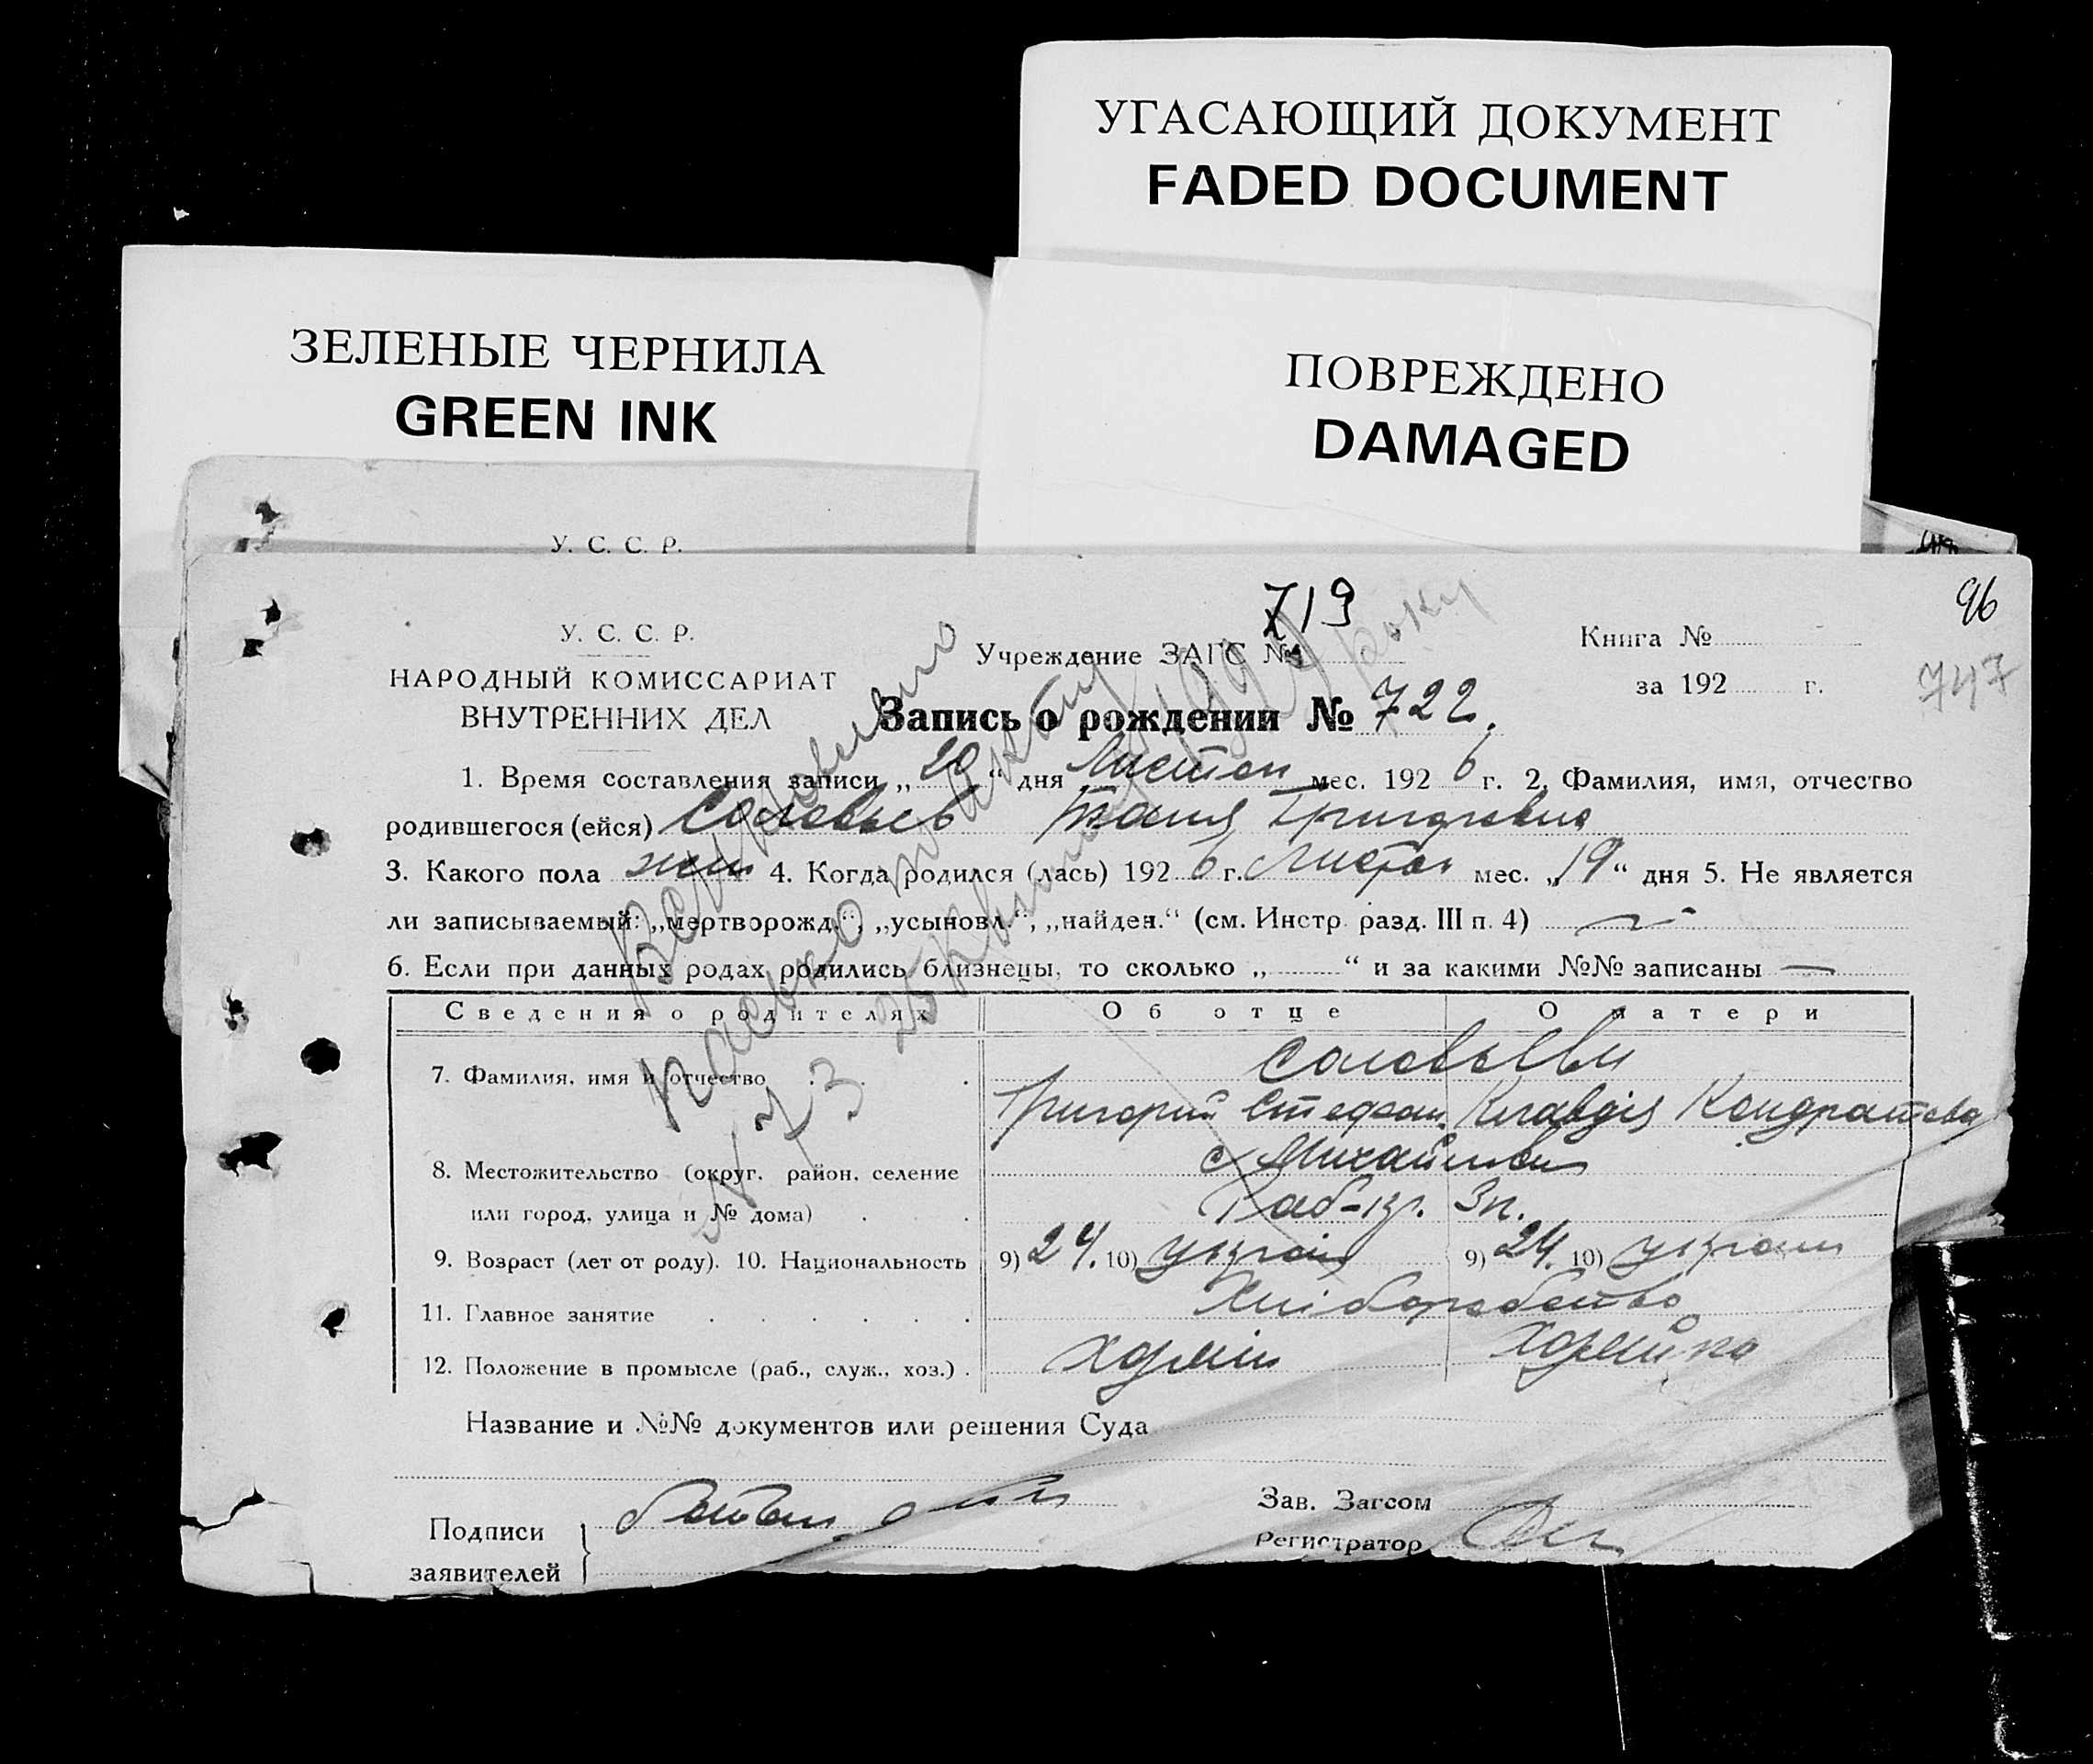 УГАСАЮЩИЙ ДОКУМЕНТ
FADED DOCUMENT
ЗЕЛЕНЫЕ ЧЕРНИЛА
GREEN INK
ПОВРЕЖДЕНО
DAMAGED
У. С. С. Р.
96
719
У. С. С. Р.
Учреждение ЗАГС №
Книга №
НАРОДНЫЙ КОМИССАРИАТ
за 192 г.
747
ВНУТРЕННИХ ДЕЛ
Запись о рождении № 722.
1. Время составления записи „20“ дня Листоп мес. 1926 г. 2. Фамилия, имя, отчество
родившегося (ейся) Соловьев Таня Григоровна
3. Какого пола жен 4. Когда родился (лась) 1926 г. Листоп мес. „19“ дня 5. Не является
ли записываемый: „мертворожд.“, „усыновл.“, „найден.“ (см. Инстр. разд. III п. 4)
6. Если при данных родах родились близнецы, то сколько „ “ и за какими №№ записаны —
Сведения о родителях Об отце О матери
7. Фамилия, имя и отчество Соловьеви
Григорий Стефан. Клавдия Кондратова
8. Местожительство (округ, район, селение с Михайлівки
или город, улица и № дома)
9. Возраст (лет от роду). 10. Национальность 9) 24. 10) україн 9) 24. 10) україн
11. Главное занятие Хліборобство
12. Положение в промысле (раб., служ., хоз.) хозяін хозяйка
Название и №№ документов или решения Суда
Подписи
заявителей
Зав. Загсом
Регистратор